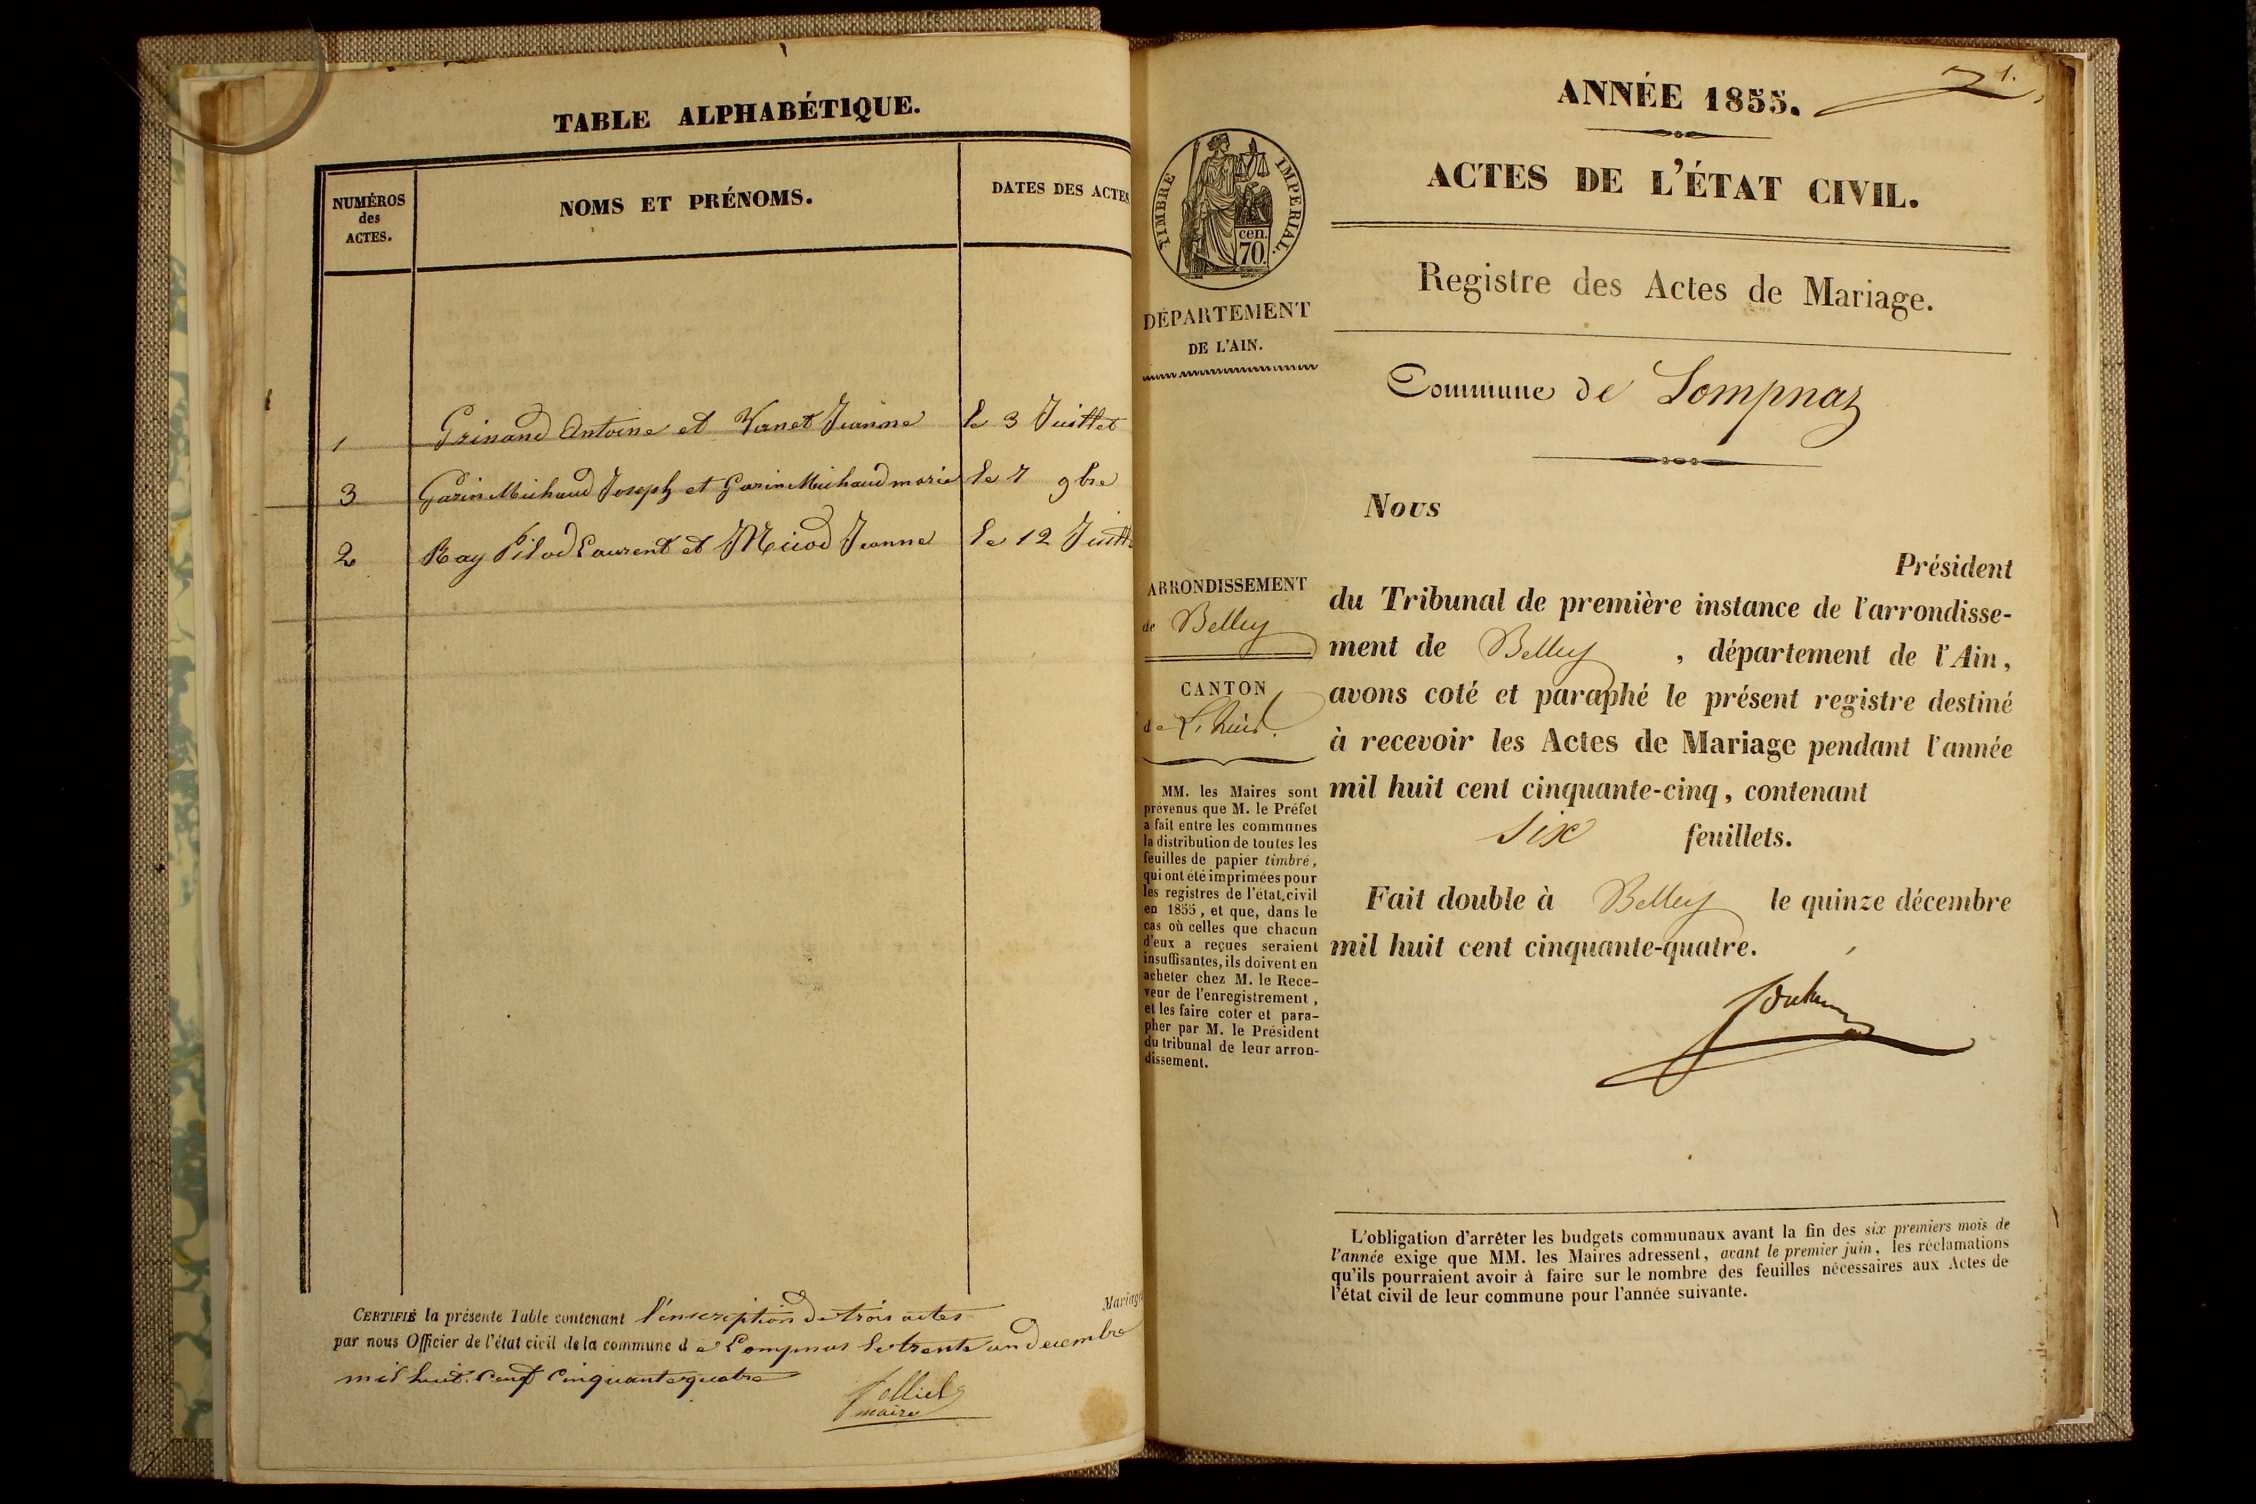 TABLE ALPHABÉTIQUE.
NUMÉROS
des
ACTES.
NOMS ET PRÉNOMS.
DATES DES ACTES
1 Grinand Antoine et Vernet Jeanne le 3 Juillet
3 Garin Michaud Joseph et Garin Michaud marie le 7 9bre
2 Ray Pilod Laurent et Jeanne le 12 Juill
Mariage
CERTIFIÉ la présente Table contenant l'inscription de trois actes
par nous Officier de l'état civil de la commune de Lompnas le trente un decembre
mil huit cent cinquante quatre
maire
1.
ANNÉE 1855.
ACTES DE L'ÉTAT CIVIL.
Registre des Actes de Mariage.
TIMBRE IMPERIAL.
cen.
70.
DÉPARTEMENT
DE L'AIN.
Commune de Lompnaz
ARRONDISSEMENT
de Belley
CANTON
de Lhuis.
MM. les Maires sont
prévenus que M. le Préfet
a fait entre les communes
la distribution de toutes les
feuilles de papier timbré,
qui ont été imprimées pour
les registres de l'état-civil
en 1855, et que, dans le
cas où celles que chacun
d'eux a reçues seraient
insuffisantes, ils doivent en
acheter chez M. le Rece-
veur de l'enregistrement,
et les faire coter et para-
pher par M. le Président
du tribunal de leur arron-
dissement.
Nous
Président
du Tribunal de première instance de l'arrondisse-
ment de Belley, département de l'Ain,
avons coté et paraphé le présent registre destiné
à recevoir les Actes de Mariage pendant l'année
mil huit cent cinquante-cinq, contenant
six feuillets.
Fait double à Belley le quinze décembre
mil huit cent cinquante-quatre.
L'obligation d'arrêter les budgets communaux avant la fin des six premiers mois de
l'année exige que MM. les Maires adressent, avant le premier juin, les réclamations
qu'ils pourraient avoir à faire sur le nombre des feuilles nécessaires aux Actes de
l'état civil de leur commune pour l'année suivante.